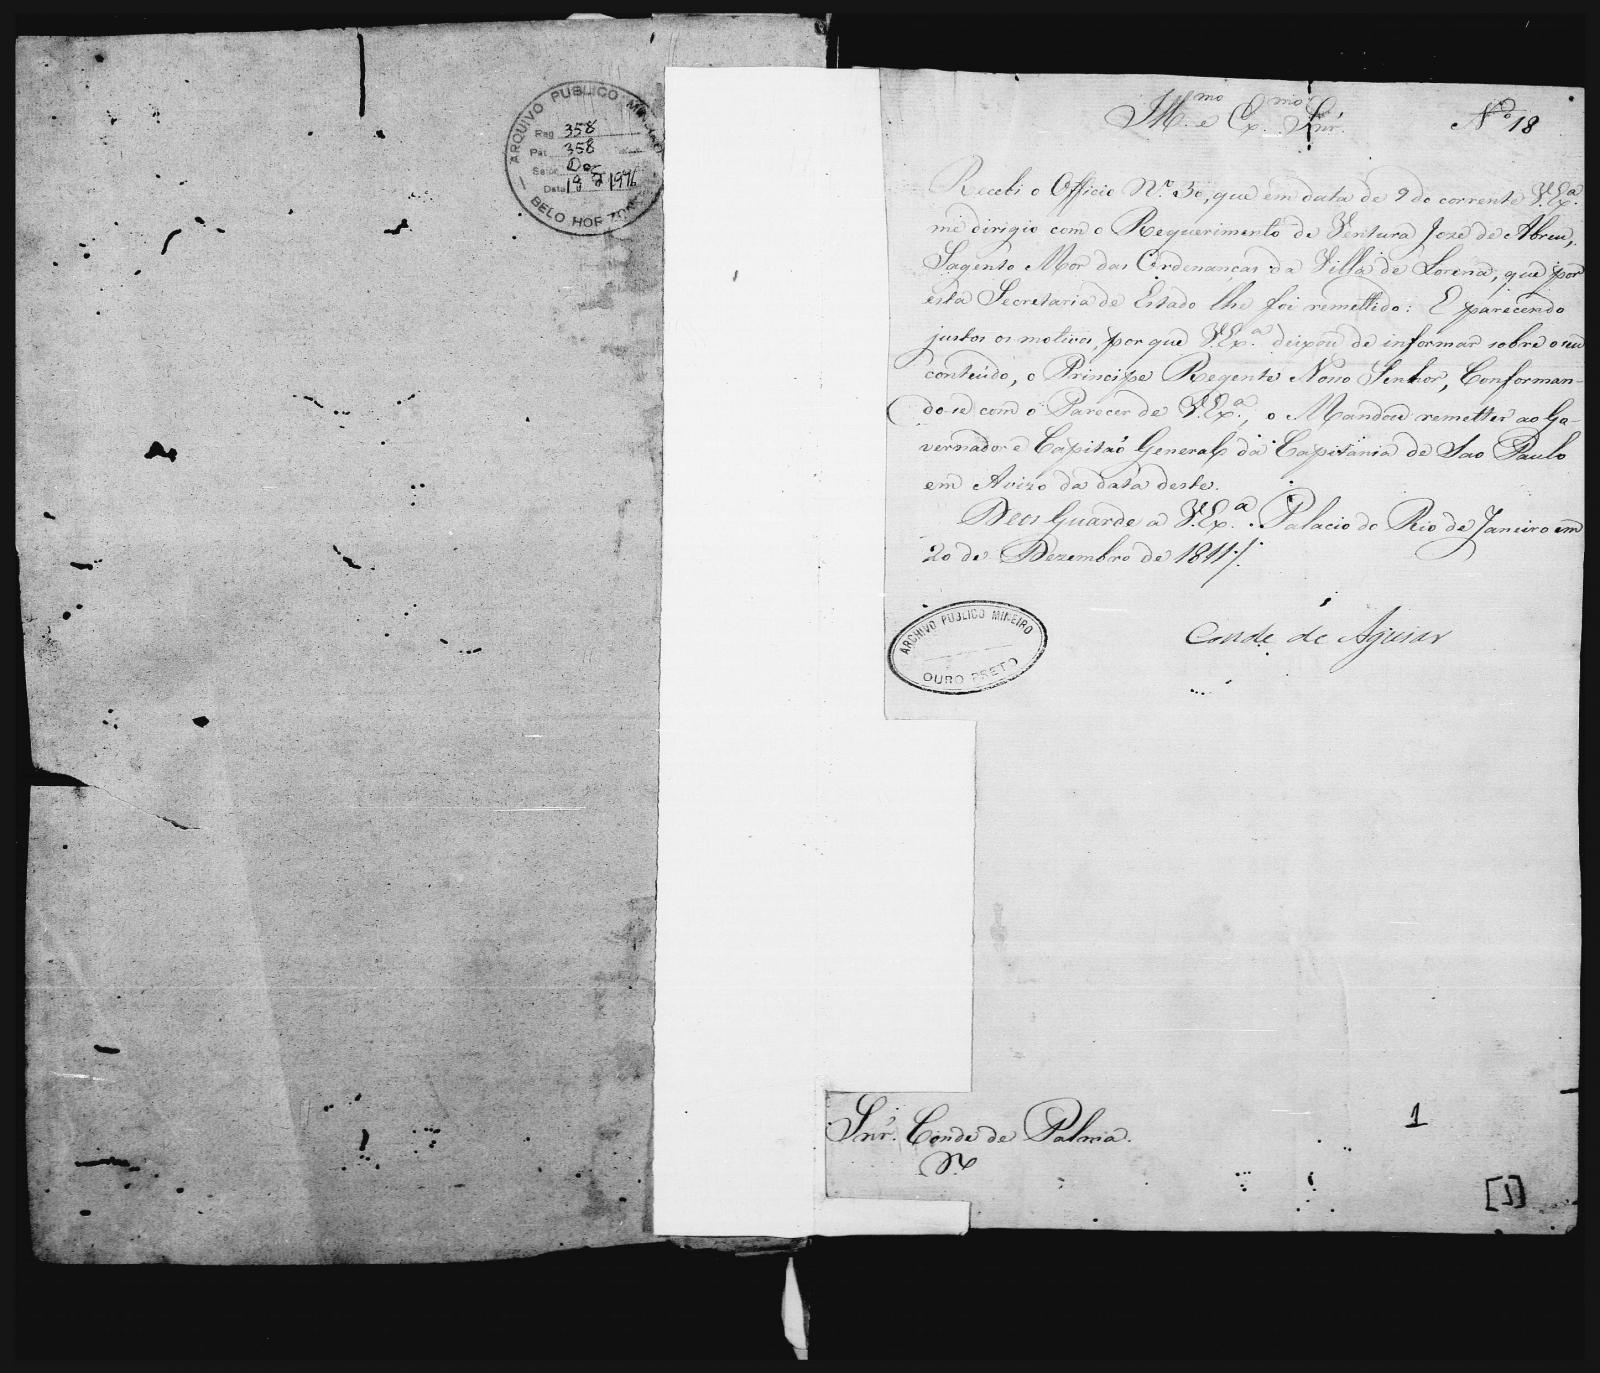 ARQUIVO PUBLICO MINEIRO
Reg 358
Pat. 358
Setor Doc
Data 19 2 1976
BELO HORIZONTE
Nº 18
Illmo. e Exmo. Snr.
Recebi o Officio Nº. 30, que em data de 9 do corrente V.Exª.
me dirigio com o Requerimento de Ventura Jozé de Abreu,
Sagento Mór das Ordenanças da Villa de Lorena, que por
esta Secretaria de Estado lhe foi remettido: E parecendo
justos os motivos, por que V.Exª. deixou de informar sobre o seu
conteúdo, o Principe Regente Nosso Senhor, Conforman-
do-se com o Parecer de V.Exª., o Mandou remetter ao Go-
vernador e Capitaõ General da Capitania de Sao Paulo
em Avizo da data deste.
Deos Guarde a V.Exª. Palacio do Rio de Janeiro em
20 de Dezembro de 1811./.
Conde de Aguiar
ARCHIVO PUBLICO MINEIRO
OURO PRETO
Snr. Conde de Palma.
1
[1]